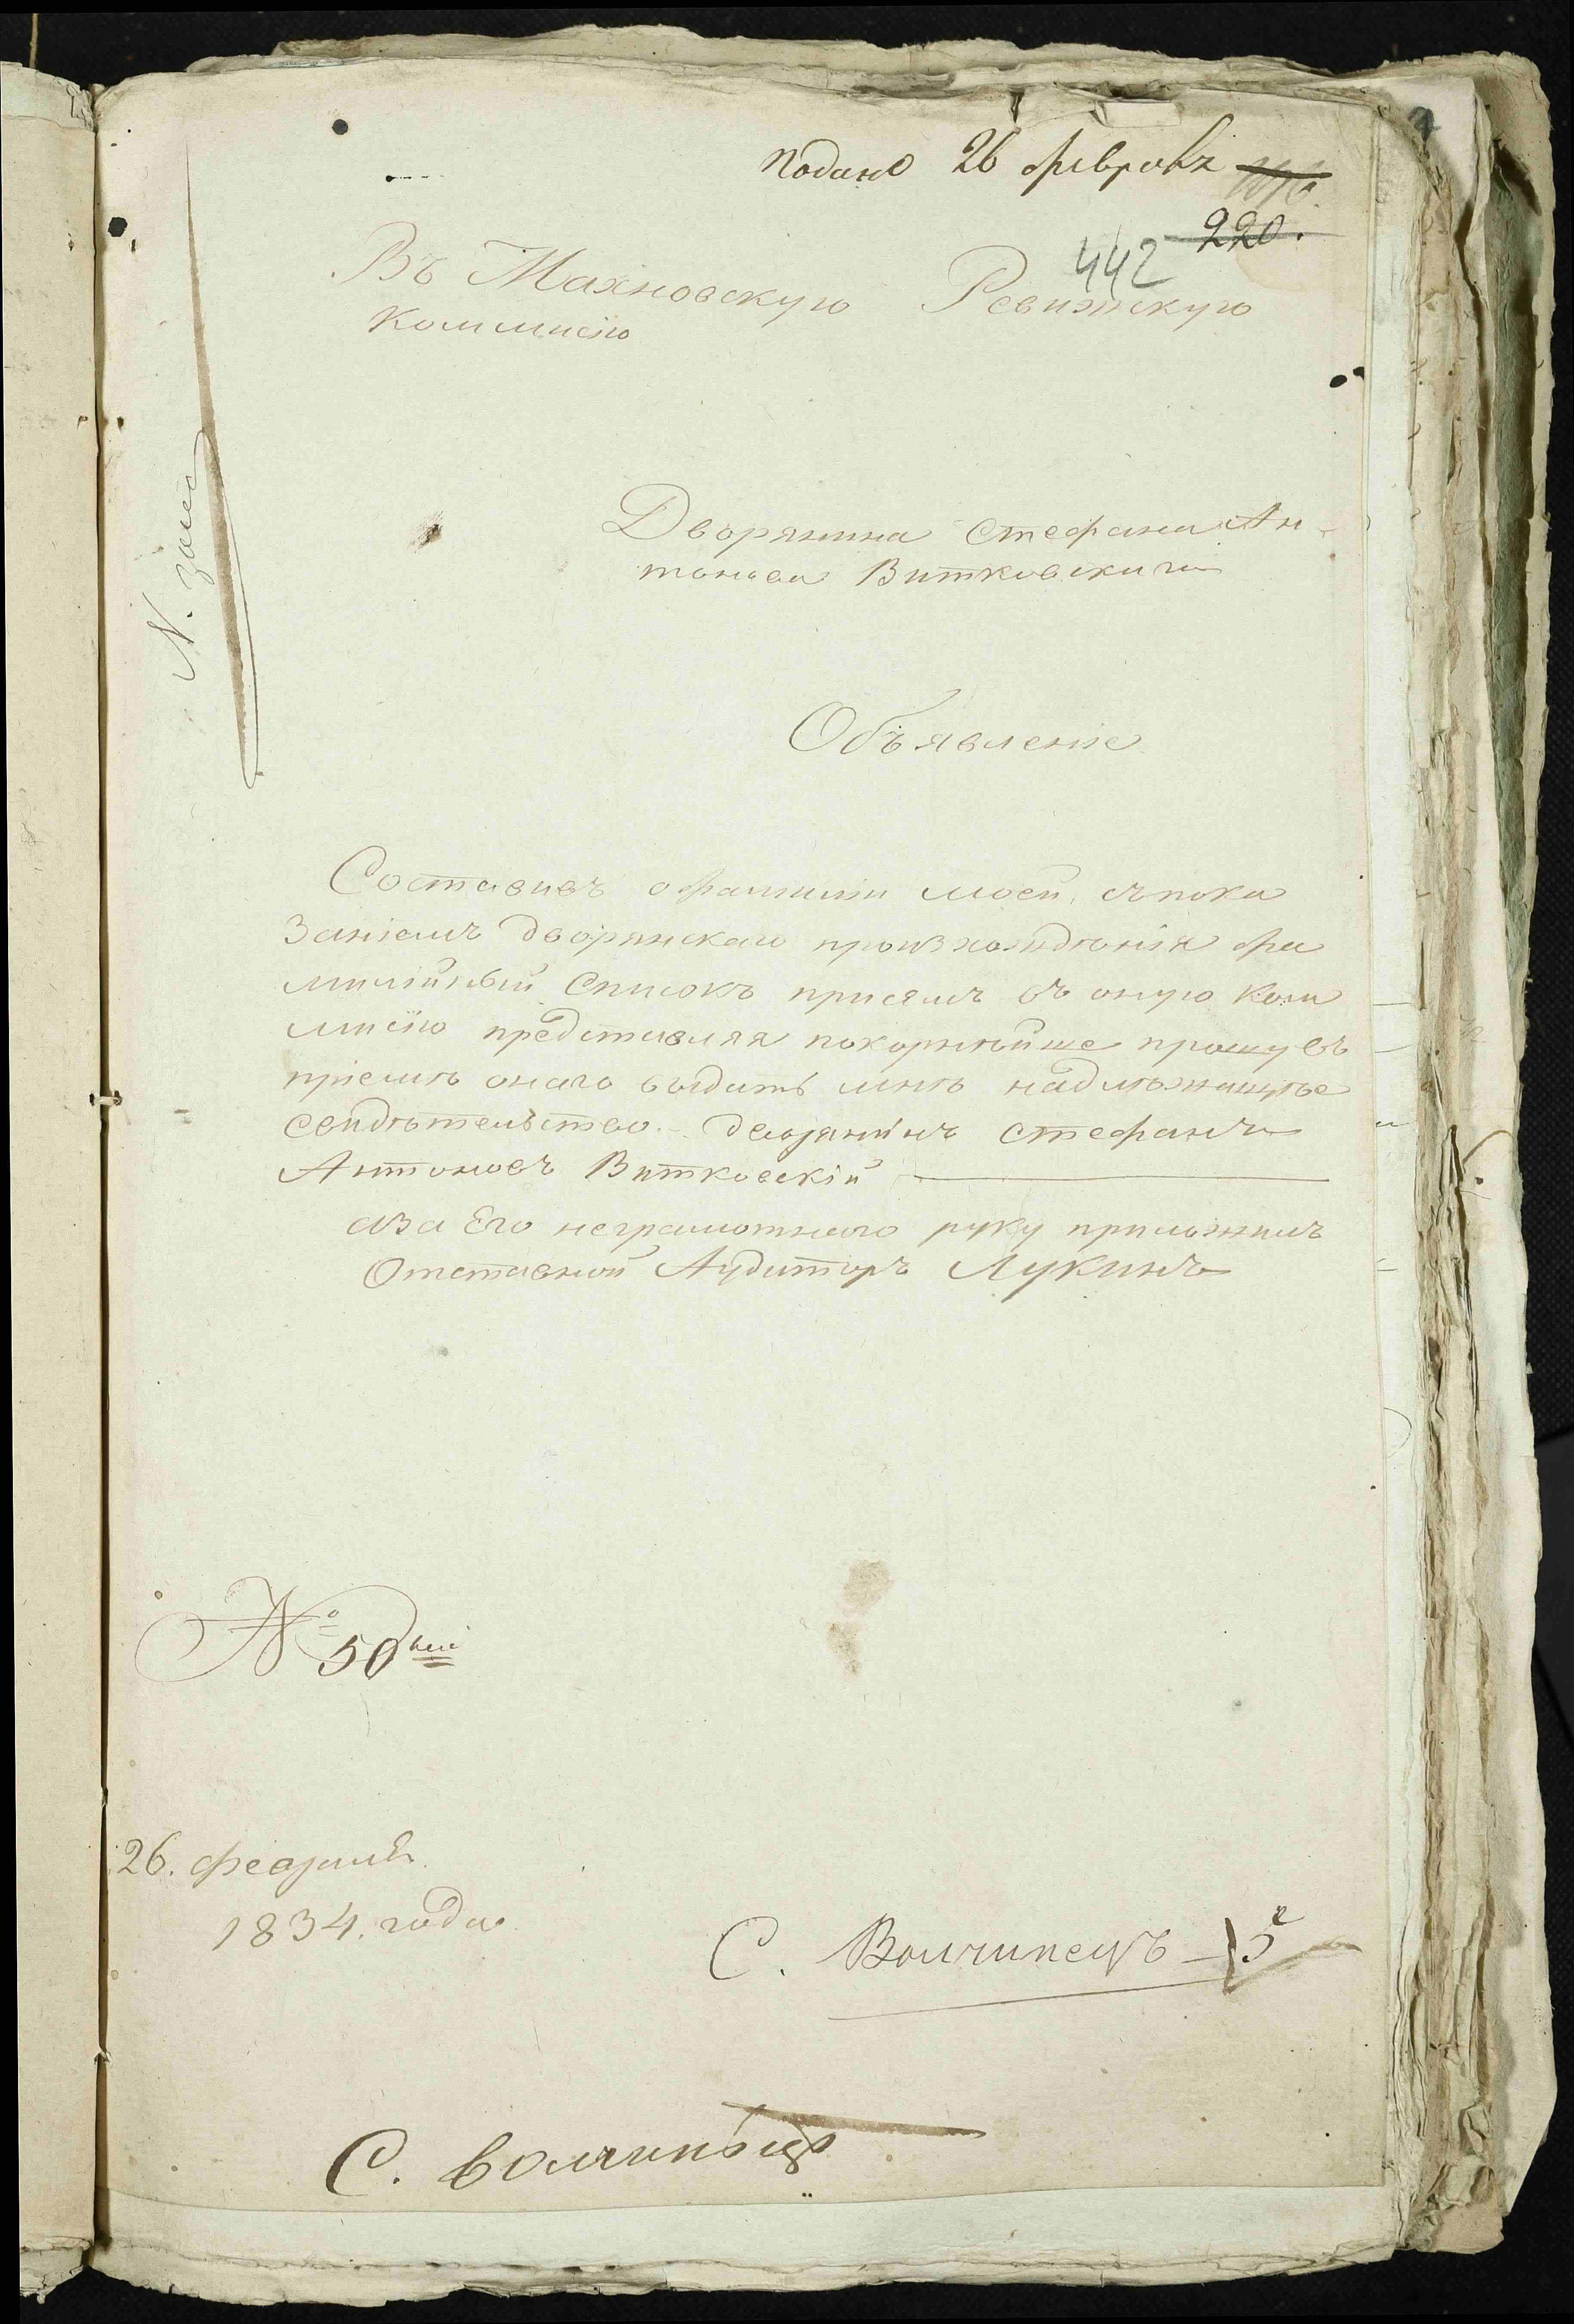 Подано 26 февраля
220.
442
Въ Махновскую Ревизскую
Коммисію
Дворянина Стефана Ан-
тонова Витковскаго
Объявленіе
Составивъ о фамиліи моей, съ пока
заніемъ дворянскаго произхожденія фа
милійный списокъ при семъ въ оную Ком
мисію представляя покорнѣйше прошу въ
пріемѣ онаго выдать мнѣ надлѣжащѣе
свидѣтельство. Дворянинъ Стефанъ
Антоновъ Витковскій
а за Его неграмотного руку приложилъ
Отставной Аудиторъ Лукинъ
№ 50
26. февраля
1834. года
С. Волчинецъ
С. Волчинецъ